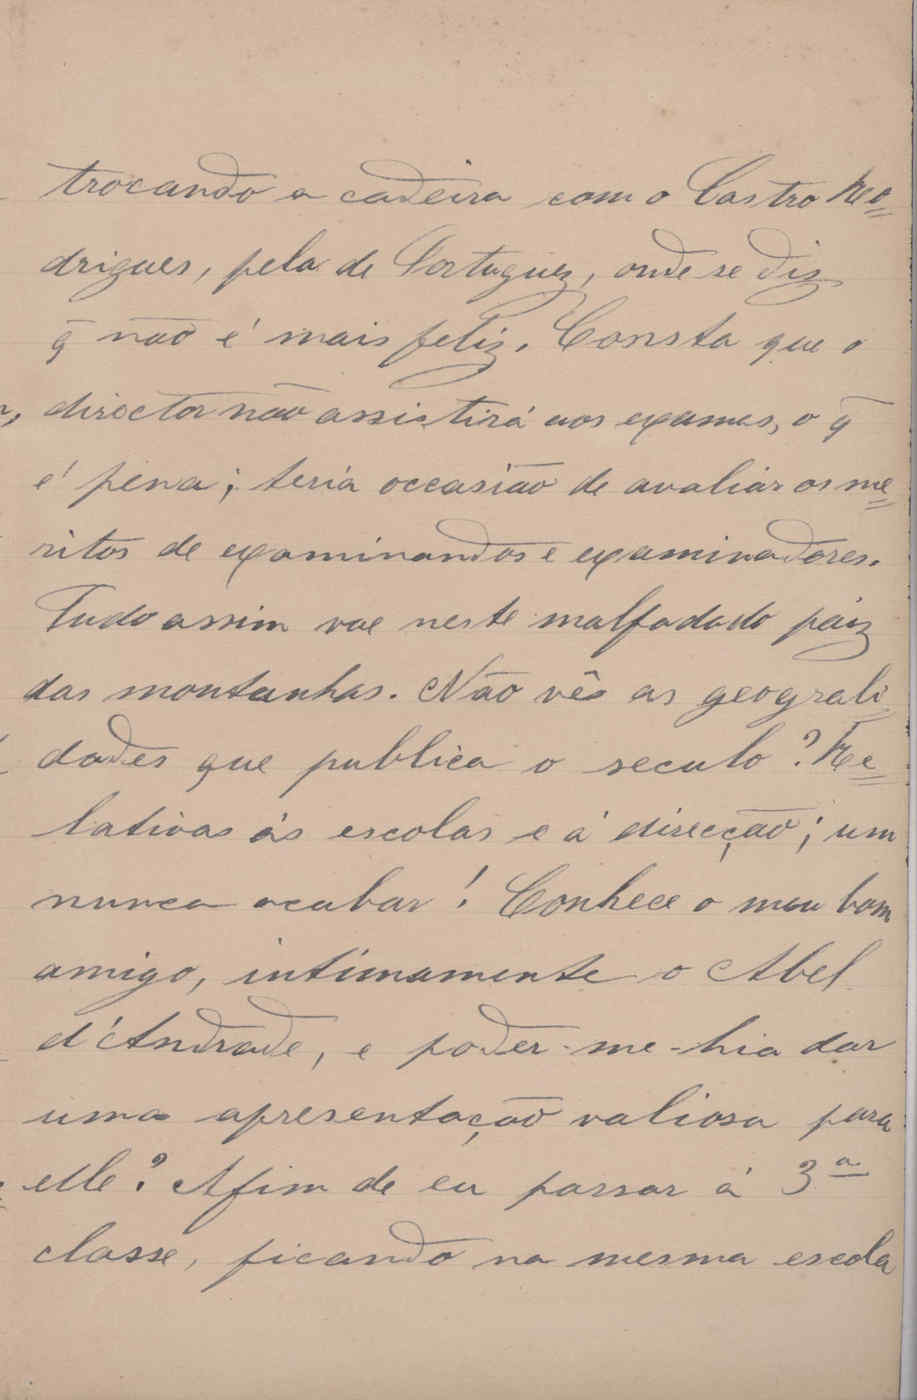 trocando a cadeira com o Castro Ro=
drigues, pela de Portuguez, onde se diz
q̄ não é mais feliz. Consta que o
director não assistirá aos exames, o q̄
é pena; teria occasião de avaliar os me=
ritos de examinandos e examinadores.
Tudo assim vae neste malfadado páiz
das montanhas. Não vês as geograli=
dades que publica o seculo? Re=
lativas ás escolas e á direcção; um
nunca acabar! Conhece o meu bom
amigo, intimamente o Abel
d'Andrade, e poder-me-hia dar
uma apresentação valiosa para
elle? Afim de eu passar á 3ª
classe, ficando na mesma escola